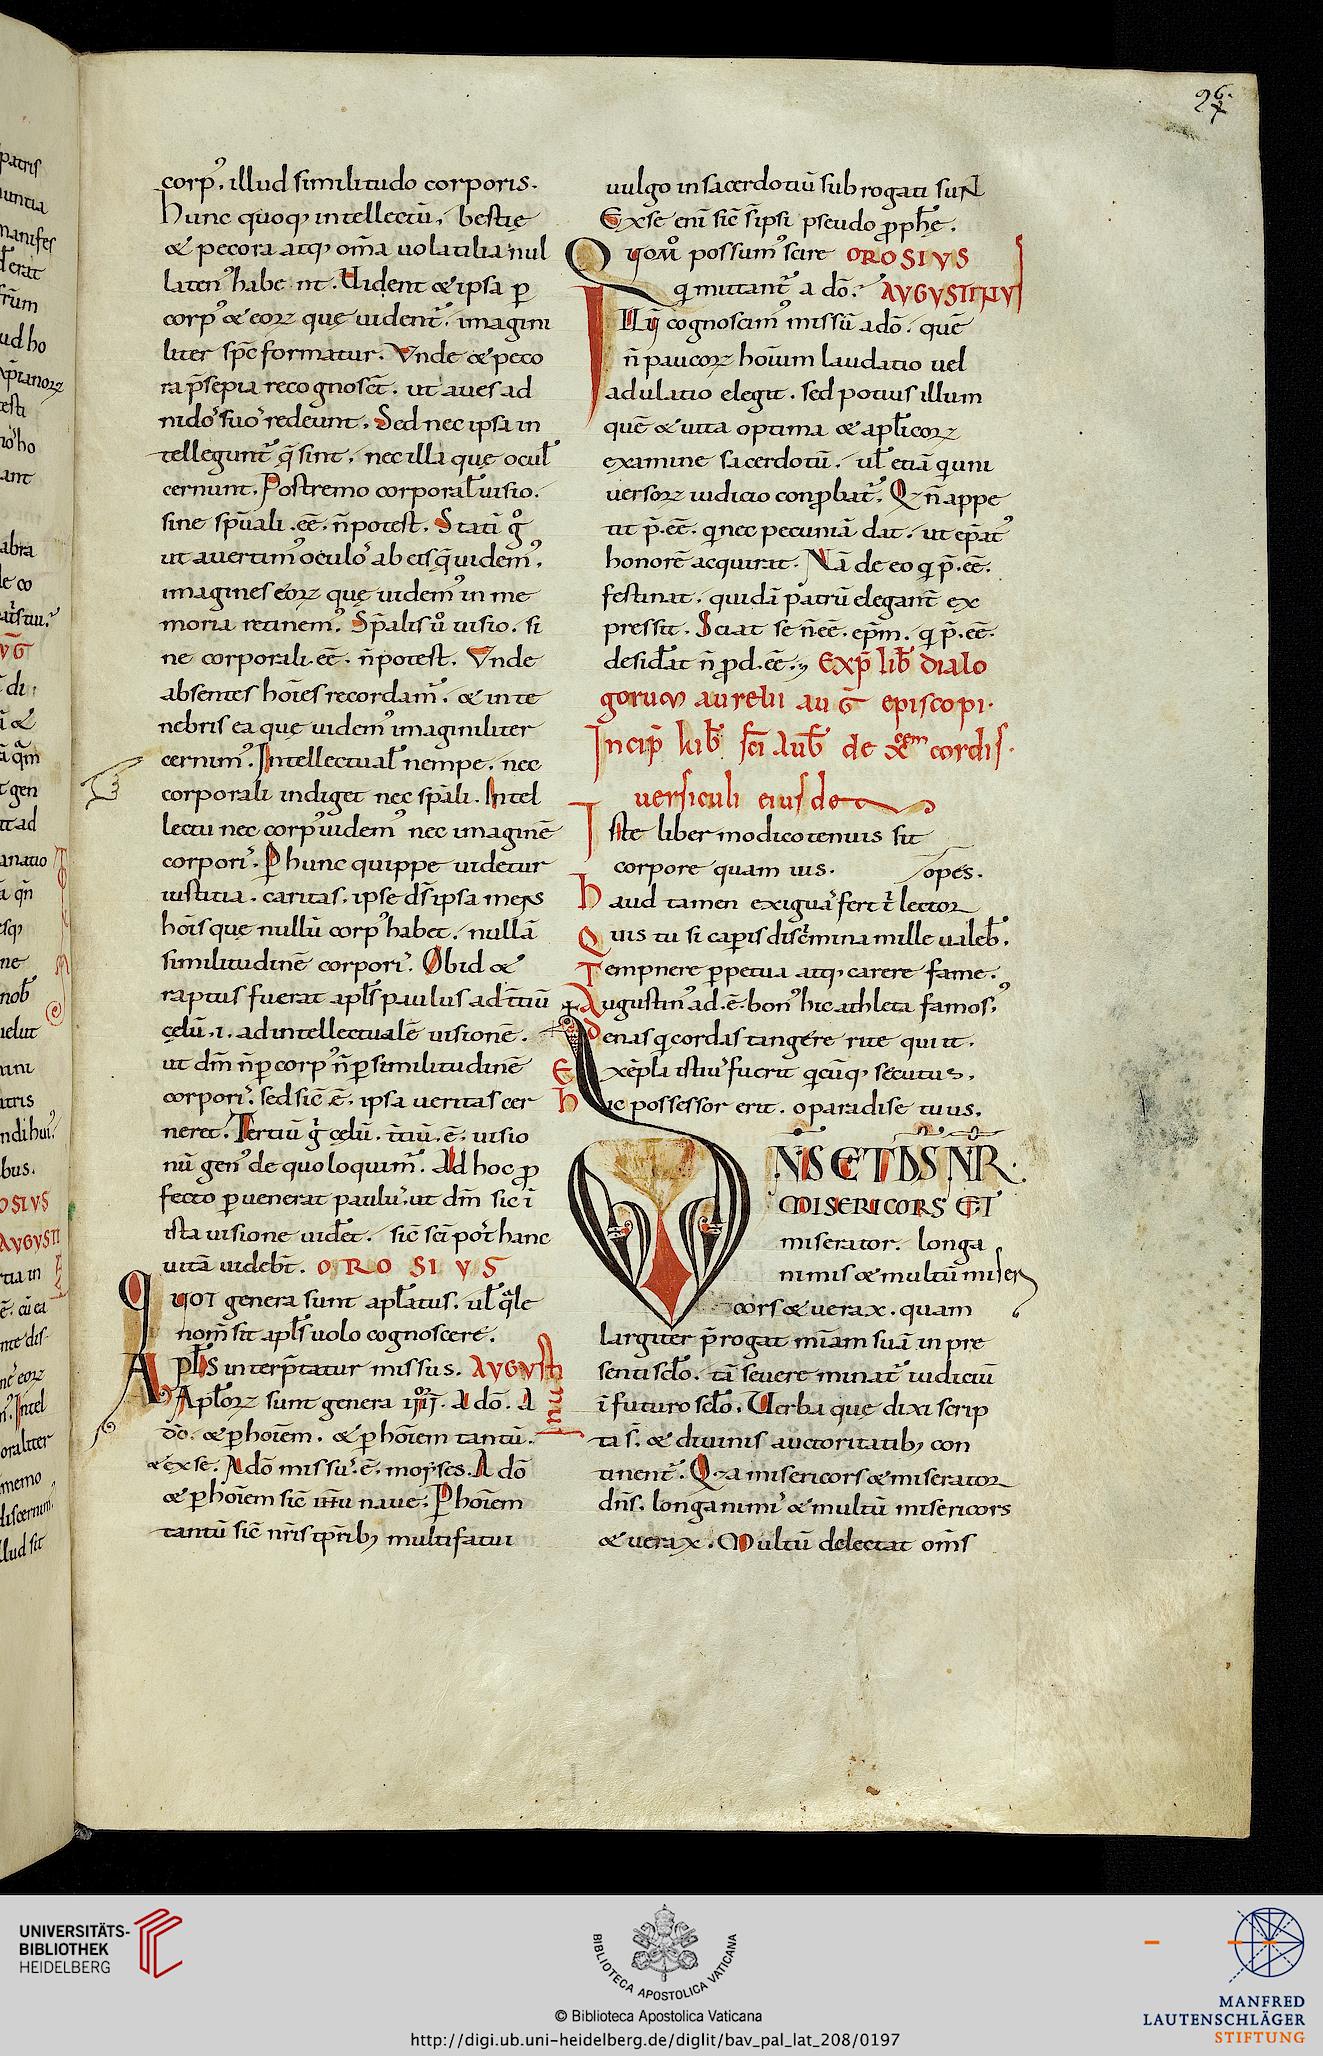 96.
corpꝰ. illud similitudo corporis.
Hunc quoq; intellectū, bestię
& pecora atq; om̄a uolatilia nul
latenꝰ habent. Vident & ipsa p̱
corpꝰ & eoꝝ quę uident̄. imagini
liter sp̄c formatur. Vnde & peco
ra p̄sepia recognoscēt. ut aues ad
nidoſ suoſ redeunt. Sed nec ipsa in
tellegunt̄ q̄ sint. nec illa que ocul̄
cernunt. Postremo corporal̄ uisio.
sine sp̄uali .ēē. n̄ potest. Statī g̊
ut auertimꝰ oculoſ ab eis q̄ uidemꝰ.
imagines eoꝝ quę uidemꝰ in me
moria retinemꝰ. Sp̄alis ů uisio. si
ne corporali .ēē. n̄ potest. Vnde
absentes hoīes recordam̄. & in te
nebris ea quę uidemꝰ imaginiliter
cernimꝰ. Intellectual̄ nempe. nec
corporali indiget nec sp̄ali. Intel
lectu nec corpꝰ uidemꝰ nec imaginē
corporiſ. P hunc quippe uidetur
iustitia. caritas. ipse d̄s ipsa mens
hoīs que nullū corpꝰ habet. nullā
similitudinē corporiſ. Ob id &
raptus fuerat apl̄s paulus ad t̄ciū
cęlū .i. ad intellectualē uisionē.
ut dm̄ n̄ p̱ corpꝰ n̄ p̱ similitudinē
corporiſ. sed sic̄ .ē. ipsa ueritas cer
neret. Tertiū ḡ cęlū. t̄ciū .ē. uisio
nū genꝰ de quo loquim̄. Ad hoc ꝓ
fecto p̱uenerat pauluſ. ut dm̄ sic ī
ista uisione uidēt. sic̄ sc̄i pot̄ hanc
uitā uidebt̄. OROSIVS
Quot genera sunt apl̄atus. ul̄ q̄le
nom̄ sit apl̄s uolo cognoscere.
Apl̄s interp̄tatur missus. AVGVSTI
nuſ
Apl̄oꝝ sunt genera iiiior. A dō. A
dō. & p̱ hoīem. & p̱ hoīem tantū.
& ex se. A dō missuſ .ē. moyses. A dō
& p̱ hoīem sic̄ ih̄u naue. P hoīem
tantū sic̄ nr̄is t̄p̄rib; multi fatui
uulgo in sacerdotiū subrogati sunt
Ex se eni sic̄ s̄ ipsi pseudo ꝓph̄e.
Quom̊ possumꝰ scire OROSIVS
qi mutant̄ a dō? AVGVSTINVſ
Illū cognoscimꝰ missū a dō. quē
n̄ paucoꝝ hoīum laudatio uel
adulatio elegit. sed potius illum
quē & uita optima & apl̄icoꝝ
examine sacerdotū. ul̄ etiā qi uni
uersoꝝ iudicio conꝓbat̄. Qi n̄ appe
tit p̄.ēē. qi nec pecuniā dat. ut ep̄atꝰ
honorē acquirat. Nā de eo qi p̄.ēē.
festinat. quidā patrū elegant̄ ex
pressit. Sciat se n̄ ēē. ep̄m. qi p̄.ēē.
desid̄at n̄ ꝓd.ēē. Exp̄ lib̄ dialo
gorum aurelii aug̅ episcopi.
Incip̄ lib̄ sc̄i Aub̄ de xcem cordiſ.
uersiculi eiusde
Iste liber modico tenuis sit
corpore quam uis. opes.
Haud tamen exiguaſ fert t̄ lector
Quis tu si capis disc̄mina mille ualeb̄.
Tempnere p̱petua atq; carere fame.
Augustinꝰ ad .ē. bonꝰ hic athleta famosꝰ
Denas qi cordas tangere rite quiit.
Exēpla istiuſ fuerit qi cūq; secutus.
Hic possessor erit. o paradise tuus.
DN̄S ET DS̄ NR̄.
MISERICORS ET
miserator. longa
nimis & multū miser
cors & uerax. quam
largiter p̄rogat mīam suā in pre
senti scl̄o. tā seuere minat̄ iudiciū
ī futuro scl̄o. Verba quę dixi scrip
ta s̄. & diuinis auctoritatib; con
tinent̄. Qia misericors & miserator
dn̄s. longanimiſ & multū misericors
& uerax. Multū delectat om̄s
UNIVERSITÄTS-
BIBLIOTHEK
HEIDELBERG
BIBLIOTECA APOSTOLICA VATICANA
© Biblioteca Apostolica Vaticana
http://digi.ub.uni-heidelberg.de/diglit/bav_pal_lat_208/0197
MANFRED
LAUTENSCHLÄGER
STIFTUNG